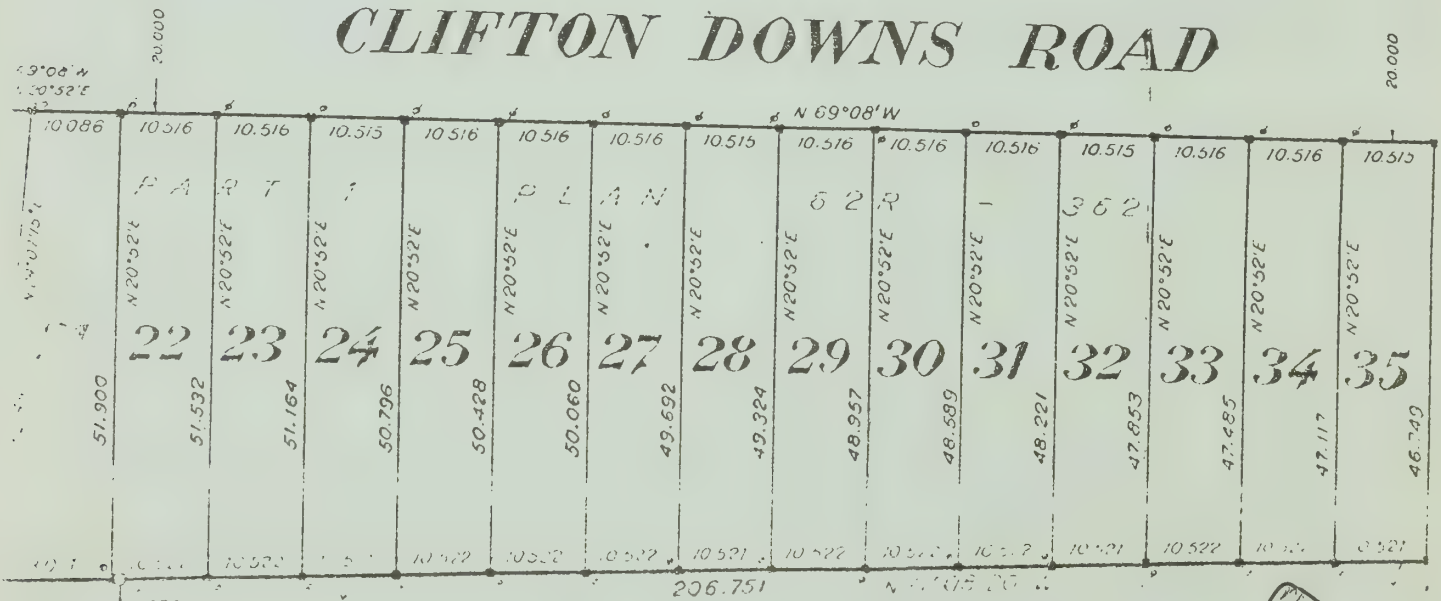 CLIFTON DOWNS ROAD
20.000
20.000
N 69°08'W
10.086 10.516 10.516 10.515 10.516 10.516 10.516 10.515 10.516 10.516 10.516 10.515 10.516 10.516 10.515
PART 1 PLAN 62R - 362
N20°52'E N20°52'E N20°52'E N20°52'E N20°52'E N20°52'E N20°52'E N20°52'E N20°52'E N20°52'E N20°52'E
22 23 24 25 26 27 28 29 30 31 32 33 34 35
51.900 51.532 51.164 50.796 50.428 50.060 49.692 49.324 48.957 48.589 48.221 47.853 47.485 47.117 46.749
10.522 10.522 10.522 10.522 10.521 10.522 10.521 10.522
206.751